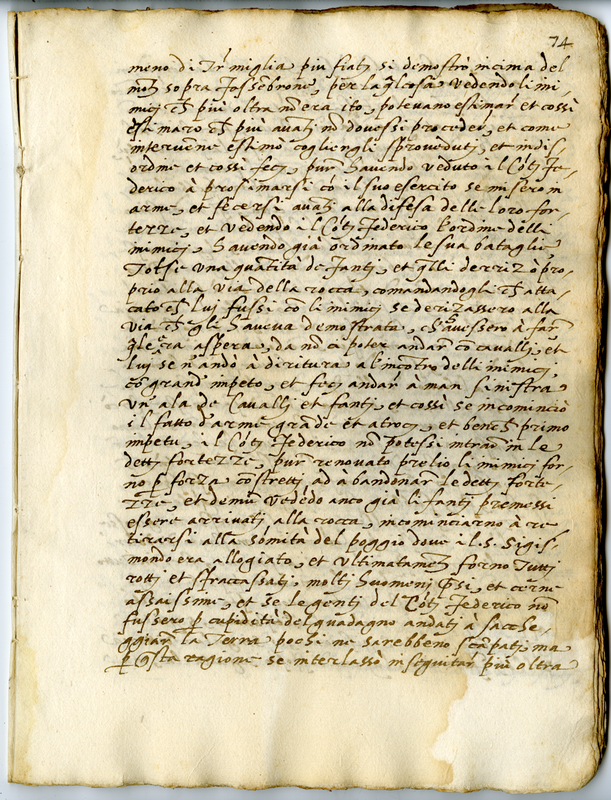 74
meno di Tre miglia piu fiate si demostrò in cima del
mote sopra fossebrone, per la qlcosa vedendo li ini
mici ch più oltra nò era ito, potevano estimar et cossì
estimaro ch più avati nò dovessi proceder, et come
intervene estimò cogliengli sproveduti, et in dis-
ordine et cossi feci, pur havendo veduto il Cote Fe-
derico à prosimarsi có il suo esercito se misero in
arme, et fecersi avati alla difesa delle loro for-
tezze, et vedendo il Cote Federico l'ordine delli
inimici, havendo già ordinato le sua bataglie,
Tolse una quatità de fanti, et qlli derrizò pro-
prio alla via della rocca, comandandogli ch atta-
cato ch lui fussi cò li inimici se derizassero alla
via ch gli haveva demostrata, ch avessero à far
qle era aspera, da nò ci poter andar cò cavalli, et
lui se n'andò à diritura al incotro delli inimici,
cò grand' impeto, et feci andar à man sinistra
un' ala de Cavalli et fanti, et cossì se incominciò
il fatto d'arme grade et atroci, et bench primo
impetu, il Cote Federico nò potessi intrar in le
detti fortezze, pur renovato prelio li inimici for-
no p forza costretti ad à bandonar le detti forte-
zze, et demu vededo anco già li fanti premessi
essere arrivati alla rocca, incominciarno à re
tirarsi alla somità del poggio dove il S. Sigis-
mondo era allogiato, et ultimatamete forno Tutti
rotti et sfracassati, molti huomeni psi, et cerne
assaissime, et se le genti del Cote Federico nò
fussero p cupidità del guadagno andati à sacche-
ggiar la Terra pochi ne sarebbeno scapati, ma
p qsta ragione se interlassò in seguitar più oltra